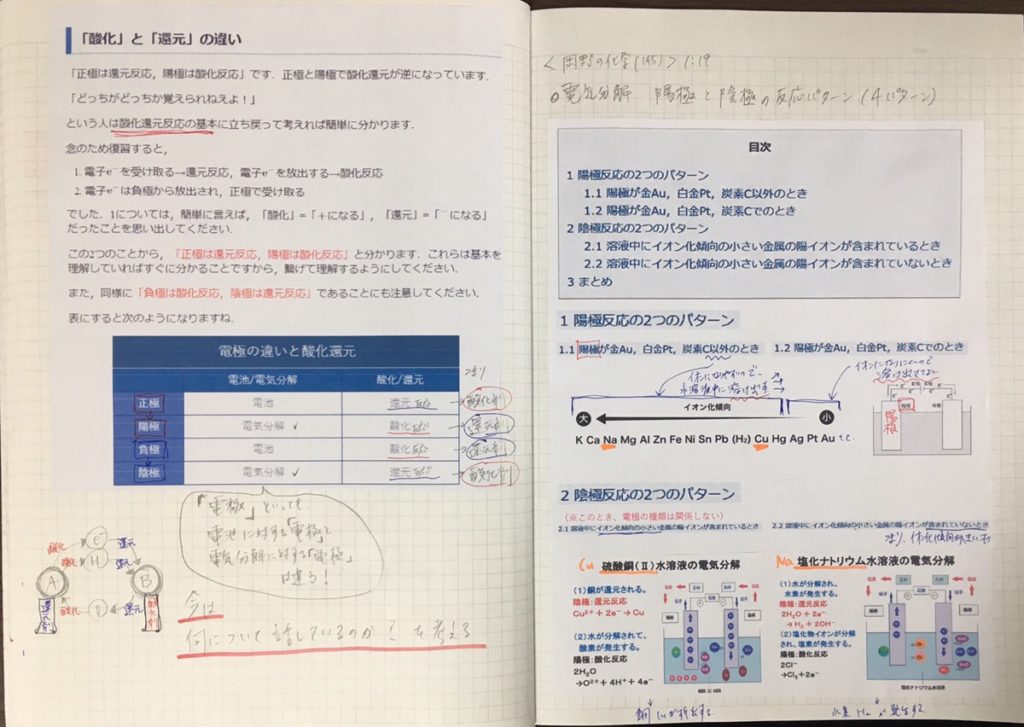 「酸化」と「還元」の違い
「正極は還元反応，陽極は酸化反応」です．正極と陽極で酸化還元が逆になっています．
「どっちがどっちか覚えられねえよ！」
という人は酸化還元反応の基本に立ち戻って考えれば簡単に分かります．
念のため復習すると，
1. 電子e⁻ を受け取る→還元反応，電子e⁻ を放出する→酸化反応
2. 電子e⁻ は負極から放出され，正極で受け取る
でした．1については，簡単に言えば，「酸化」＝「＋になる」，「還元」＝「⁻になる」
だったことを思い出してください．
この2つのことから，「正極は還元反応，陽極は酸化反応」と分かります．これらは基本を
理解していればすぐに分かることですから，繋げて理解するようにしてください．
また，同様に「負極は酸化反応，陰極は還元反応」であることにも注意してください．
表にすると次のようになりますね．
電極の違いと酸化還元
電池/電気分解 酸化/還元 つまり
正極 電池 還元 酸化剤
陽極 電気分解 ✓ 酸化 還元剤
負極 電池 酸化 還元剤
陰極 電気分解 ✓ 還元 酸化剤
「電極」といっても
電池に対する「電極」と
電気分解に対する「電極」
は違う！
酸化 e⁻ 還元
酸化 H 還元
A B
酸化 O 還元
還元剤 酸化剤
今は
何について話しているのか？を考える
＜岡野の化学(145)＞ 1:19
○電気分解 陽極と陰極の反応パターン（4パターン）
目次
1 陽極反応の2つのパターン
1.1 陽極が金Au，白金Pt，炭素C以外のとき
1.2 陽極が金Au，白金Pt，炭素Cでのとき
2 陰極反応の2つのパターン
2.1 溶液中にイオン化傾向の小さい金属の陽イオンが含まれているとき
2.2 溶液中にイオン化傾向の小さい金属の陽イオンが含まれていないとき
3 まとめ
1 陽極反応の2つのパターン
1.1 陽極が金Au，白金Pt，炭素C以外のとき
1.2 陽極が金Au，白金Pt，炭素Cでのとき
イオンになりやすいので、
水溶液中に溶け出す
イオンになりにくいので
溶け出さない
大 イオン化傾向 小
K Ca Na Mg Al Zn Fe Ni Sn Pb (H₂) Cu Hg Ag Pt Au
陽極
2 陰極反応の2つのパターン
（※このとき、電極の種類は関係しない）
2.1 溶液中にイオン化傾向の小さい金属の陽イオンが含まれているとき
2.2 溶液中にイオン化傾向の小さい金属の陽イオンが含まれていないとき
Cu 硫酸銅(Ⅱ)水溶液の電気分解
(1)銅が還元される。
陰極：還元反応
Cu²⁺ + 2e⁻ → Cu
(2)水が分解されて、
酸素が発生する。
陽極：酸化反応
2H₂O
→O²⁺ + 4H⁺ + 4e⁻
Na 塩化ナトリウム水溶液の電気分解
(1)水が分解され、
水素が発生する。
陰極：還元反応
2H₂O + 2e⁻
→ H₂ + 2OH⁻
(2)塩化物イオンが分解
され、塩素が発生する。
陽極：酸化反応
2Cl⁻
→Cl₂+2e⁻
塩化ナトリウム水溶液
水素 H₂ が発生する